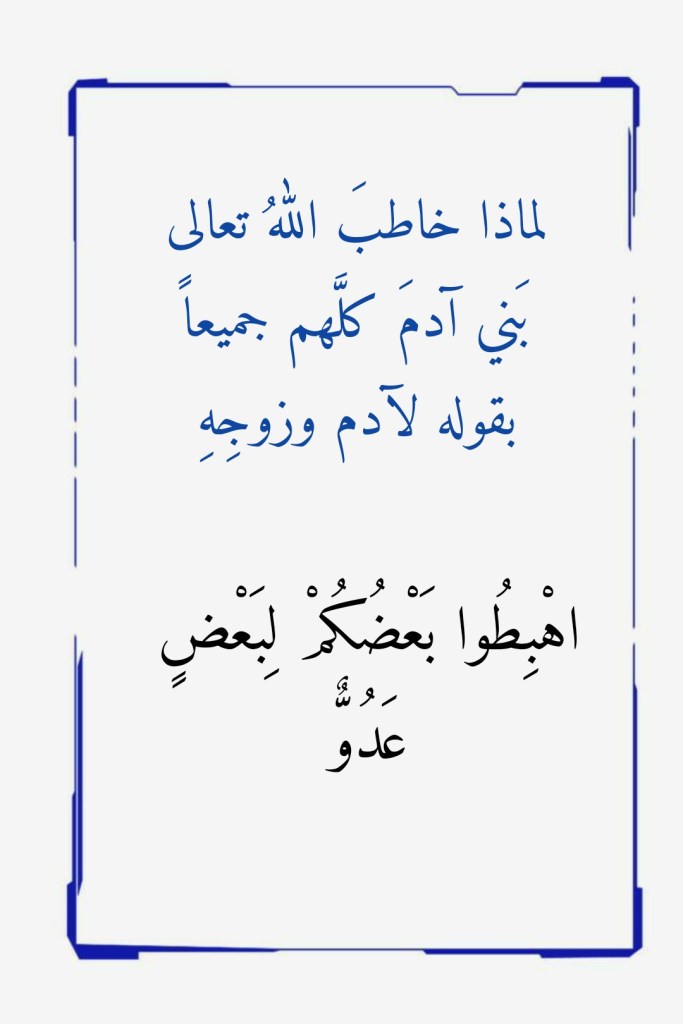 لماذا خاطبَ اللهُ تعالى
بَني آدمَ كلَّهم جميعاً
بقوله لآدم وزوجِهِ
اهْبِطُوا بَعْضُكُمْ لِبَعْضٍ
عَدُوٌّ